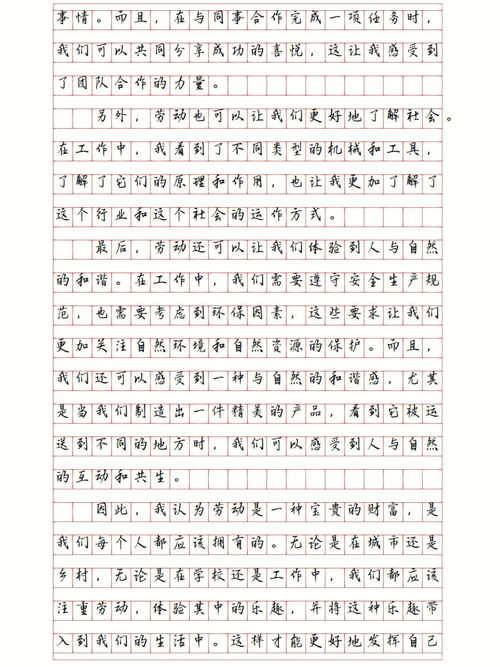 事情。而且，在与同事合作完成一项任务时，
我们可以共同分享成功的喜悦，这让我感受到
了团队合作的力量。
另外，劳动也可以让我们更好地了解社会。
在工作中，我看到了不同类型的机械和工具，
了解了它们的原理和作用，也让我更加了解了
这个行业和这个社会的运作方式。
最后，劳动还可以让我们体验到人与自然
的和谐。在工作中，我们需要遵守安全生产规
范，也需要考虑到环保因素，这些要求让我们
更加关注自然环境和自然资源的保护。而且，
我们还可以感受到一种与自然的和谐感，尤其
是当我们制造出一件精美的产品，看到它被运
送到不同的地方时，我们可以感受到人与自然
的互动和共生。
因此，我认为劳动是一种宝贵的财富，是
我们每个人都应该拥有的。无论是在城市还是
乡村，无论是在学校还是工作中，我们都应该
注重劳动，体验其中的乐趣，并将这种乐趣带
入到我们的生活中。这样才能更好地发挥自己